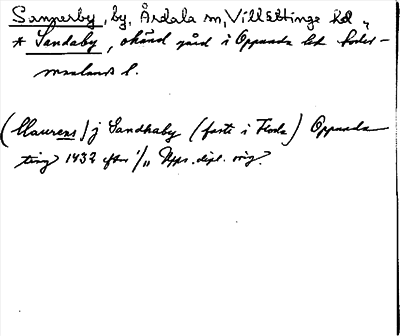 Sannerby, by, Årdala sn, Villåttinge hd,,
* Sandaby, okänd gård i Oppunda hd Söder-
manlands l.
(Maurens) j Sandhaby (fasti i Floda) Oppunda
ting 1432 efter 1/11 Upps. dipl. orig.